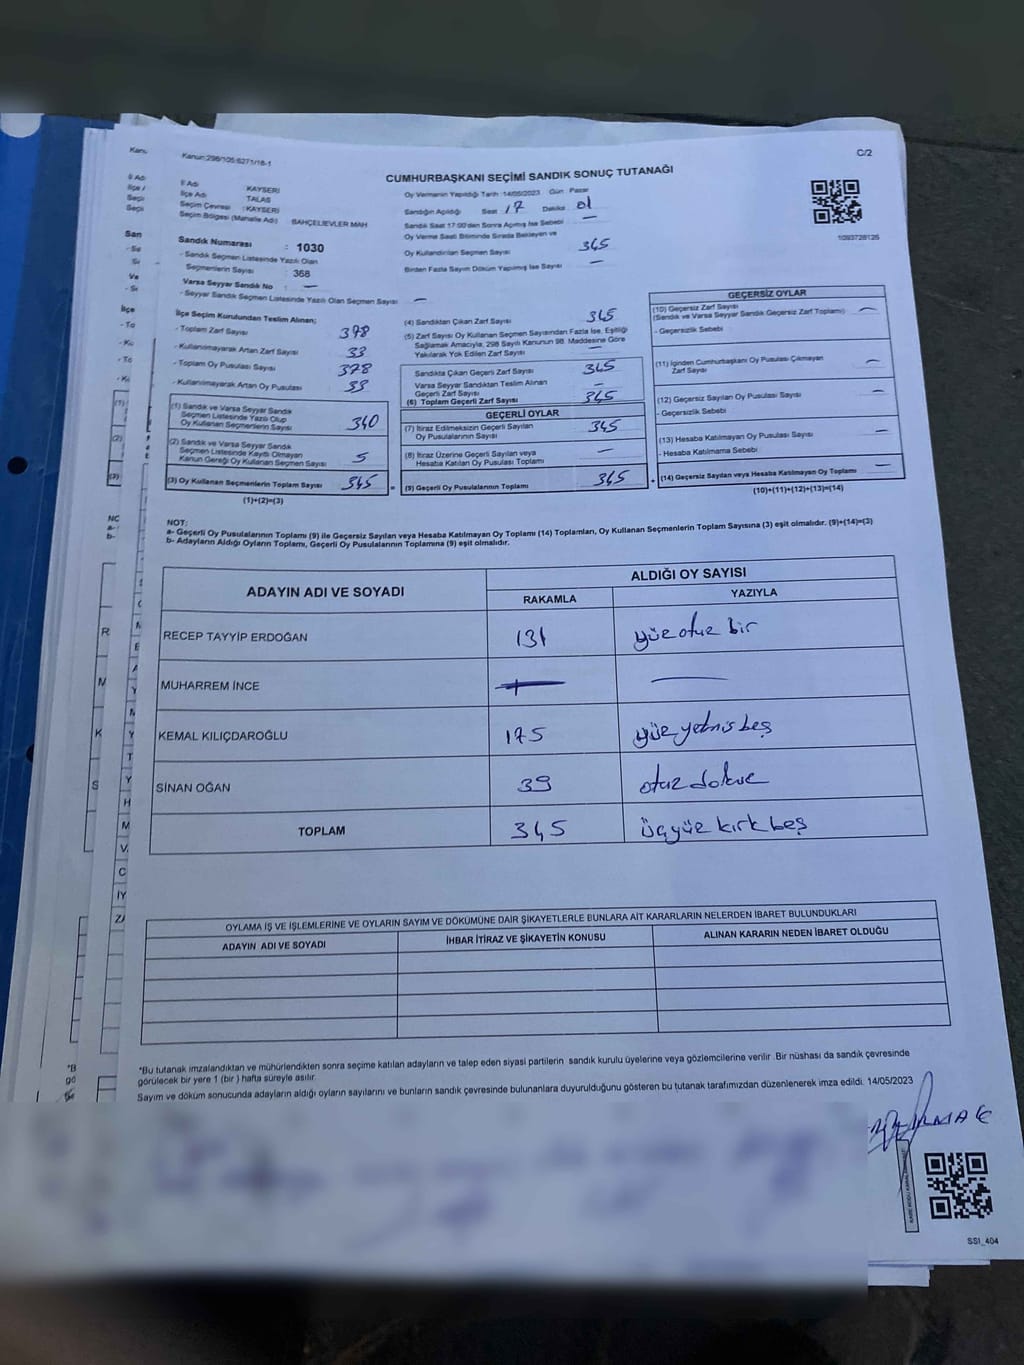 Kanun:298/105;6271/18-1
C/2
CUMHURBAŞKANI SEÇİMİ SANDIK SONUÇ TUTANAĞI
İl Adı KAYSERİ
İlçe Adı TALAS
Seçim Çevresi :KAYSERİ
Seçim Bölgesi (Mahalle Adı) BAHÇELİEVLER MAH
Oy Vermenin Yapıldığı Tarih :14/05/2023 Gün : Pazar
Sandığın Açıldığı Saat 17 Dakika 01
Sandık Saat 17:00'den Sonra Açılmış İse Sebebi —
Oy Verme Saati Bitiminde Sırada Bekleyen ve
Oy Kullandırılan Seçmen Sayısı 345
Birden Fazla Sayım Döküm Yapılmış İse Sayısı —
1093728126
Sandık Numarası : 1030
- Sandık Seçmen Listesinde Yazılı Olan
Seçmenlerin Sayısı : 368
Varsa Seyyar Sandık No : —
- Seyyar Sandık Seçmen Listesinde Yazılı Olan Seçmen Sayısı —
İlçe Seçim Kurulundan Teslim Alınan;
- Toplam Zarf Sayısı 378
- Kullanılmayarak Artan Zarf Sayısı 33
- Toplam Oy Pusulası Sayısı 378
- Kullanılmayarak Artan Oy Pusulası 33
(1) Sandık ve Varsa Seyyar Sandık
Seçmen Listesinde Yazılı Olup
Oy Kullanan Seçmenlerin Sayısı 340
(2) Sandık ve Varsa Seyyar Sandık
Seçmen Listesinde Kayıtlı Olmayan
Kanun Gereği Oy Kullanan Seçmen Sayısı 5
(3) Oy Kullanan Seçmenlerin Toplam Sayısı 345 =
(1)+(2)=(3)
(4) Sandıktan Çıkan Zarf Sayısı 345
(5) Zarf Sayısı Oy Kullanan Seçmen Sayısından Fazla İse, Eşitliği
Sağlamak Amacıyla, 298 Sayılı Kanunun 98. Maddesine Göre
Yakılarak Yok Edilen Zarf Sayısı —
Sandıkta Çıkan Geçerli Zarf Sayısı 345
Varsa Seyyar Sandıktan Teslim Alınan
Geçerli Zarf Sayısı —
(6) Toplam Geçerli Zarf Sayısı 345
GEÇERLİ OYLAR
(7) İtiraz Edilmeksizin Geçerli Sayılan
Oy Pusulalarının Sayısı 345
(8) İtiraz Üzerine Geçerli Sayılan veya
Hesaba Katılan Oy Pusulası Toplamı —
(9) Geçerli Oy Pusulalarının Toplamı 345 +
GEÇERSİZ OYLAR
(10) Geçersiz Zarf Sayısı
(Sandık ve Varsa Seyyar Sandık Geçersiz Zarf Toplamı) —
- Geçersizlik Sebebi
(11) İçinden Cumhurbaşkanı Oy Pusulası Çıkmayan
Zarf Sayısı —
(12) Geçersiz Sayılan Oy Pusulası Sayısı —
- Geçersizlik Sebebi
(13) Hesaba Katılmayan Oy Pusulası Sayısı —
- Hesaba Katılmama Sebebi
(14) Geçersiz Sayılan veya Hesaba Katılmayan Oy Toplamı —
(10)+(11)+(12)+(13)=(14)
NOT:
a- Geçerli Oy Pusulalarının Toplamı (9) ile Geçersiz Sayılan veya Hesaba Katılmayan Oy Toplamı (14) Toplamları, Oy Kullanan Seçmenlerin Toplam Sayısına (3) eşit olmalıdır. (9)+(14)=(3)
b- Adayların Aldığı Oyların Toplamı, Geçerli Oy Pusulalarının Toplamına (9) eşit olmalıdır.
ADAYIN ADI VE SOYADI ALDIĞI OY SAYISI
RAKAMLA YAZIYLA
RECEP TAYYİP ERDOĞAN 131 yüz otuz bir
MUHARREM İNCE — —
KEMAL KILIÇDAROĞLU 175 yüz yetmiş beş
SİNAN OĞAN 39 otuz dokuz
TOPLAM 345 üçyüz kırk beş
OYLAMA İŞ VE İŞLEMLERİNE VE OYLARIN SAYIM VE DÖKÜMÜNE DAİR ŞİKAYETLERLE BUNLARA AİT KARARLARIN NELERDEN İBARET BULUNDUKLARI
ADAYIN ADI VE SOYADI İHBAR İTİRAZ VE ŞİKAYETİN KONUSU ALINAN KARARIN NEDEN İBARET OLDUĞU
*Bu tutanak imzalandıktan ve mühürlendikten sonra seçime katılan adayların ve talep eden siyasi partilerin sandık kurulu üyelerine veya gözlemcilerine verilir .Bir nüshası da sandık çevresinde
görülecek bir yere 1 (bir ) hafta süreyle asılır.
Sayım ve döküm sonucunda adayların aldığı oyların sayılarını ve bunların sandık çevresinde bulunanlara duyurulduğunu gösteren bu tutanak tarafımızdan düzenlenerek imza edildi. 14/05/2023
SSI_404